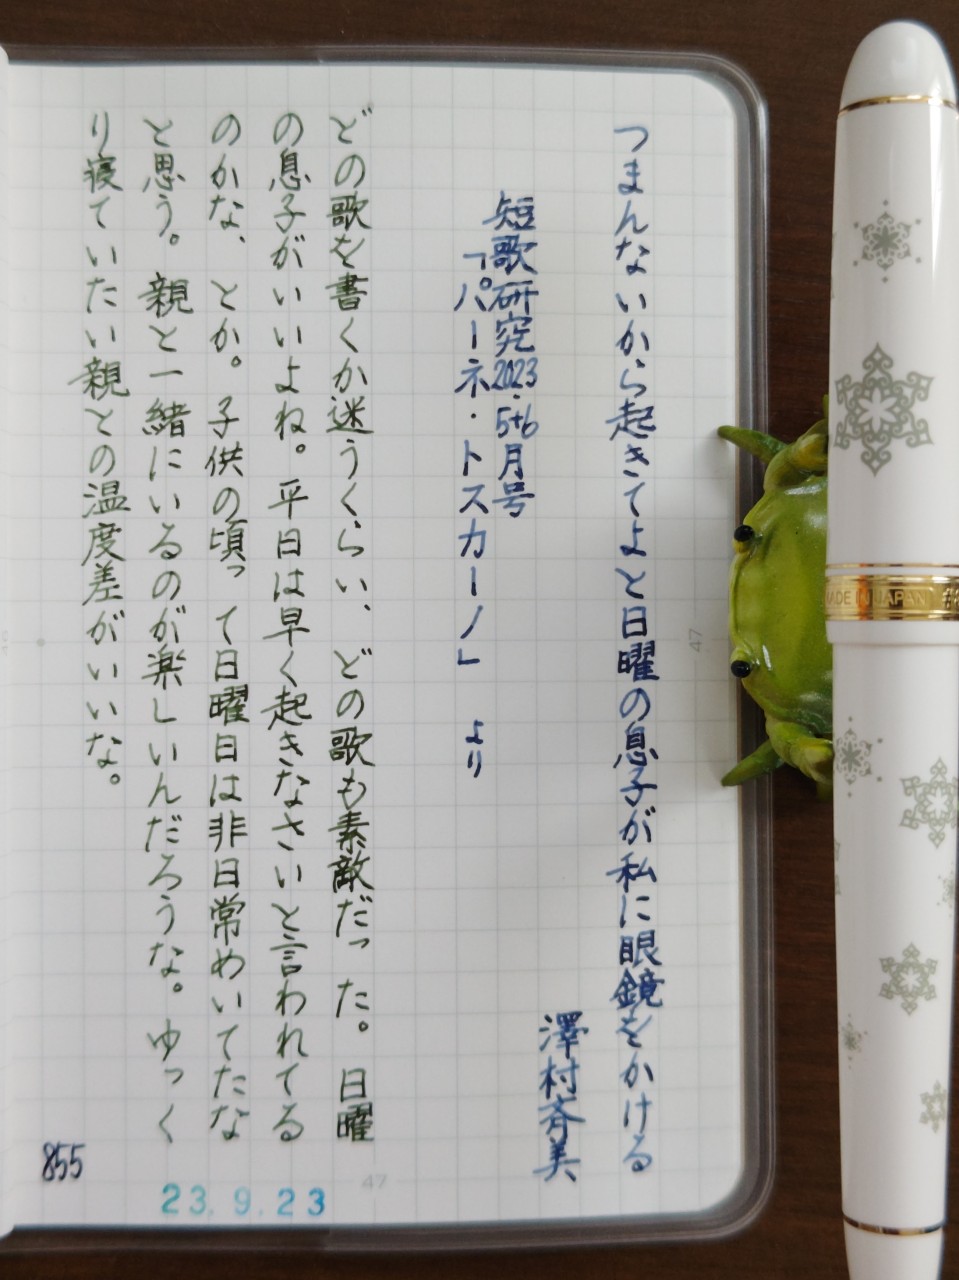 つまんないから起きてよと日曜の息子が私に眼鏡をかける
澤村斉美
短歌研究2023.5+6月号
「パーネ・トスカーノ」 より
どの歌を書くか迷うくらい、どの歌も素敵だった。日曜
の息子がいいよね。平日は早く起きなさいと言われてる
のかな、とか。子供の頃って日曜日は非日常めいてたな
と思う。親と一緒にいるのが楽しいんだろうな。ゆっく
り寝ていたい親との温度差がいいな。
855
23.9.23
47
47
MADE IN JAPAN